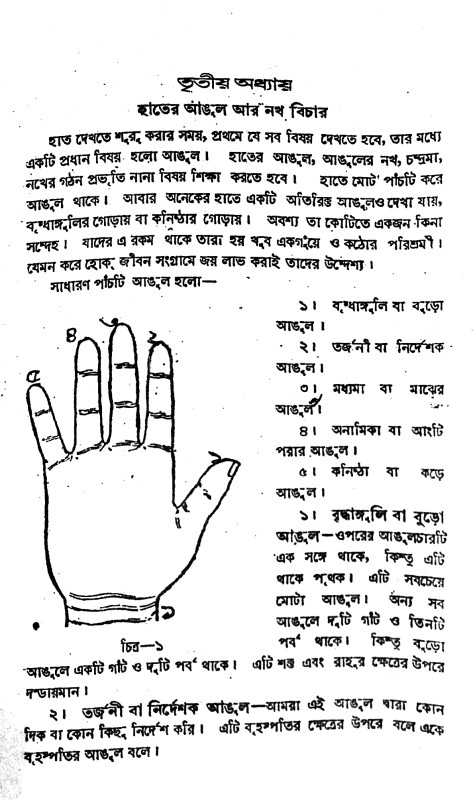 তৃতীয় অধ্যায়
হাতের আঙুল আর নখ বিচার
হাত দেখতে শুরু করার সময়, প্রথমে যে সব বিষয় দেখতে হবে, তার মধ্যে
একটি প্রধান বিষয় হলো আঙুল। হাতের আঙুল, আঙুলের নখ, চন্দ্রমা,
নখের গঠন প্রভৃতি নানা বিষয় শিক্ষা করতে হবে। হাতে মোট পাঁচটি করে
আঙুল থাকে। আবার অনেকের হাতে একটি অতিরিক্ত আঙুলও দেখা যায়,
বৃদ্ধাঙ্গুলির গোড়ায় বা কনিষ্ঠার গোড়ায়। অবশ্য তা কোটিতে একজন কিনা
সন্দেহ। যাদের এ রকম থাকে তারা হয় খুব একগুঁয়ে ও কঠোর পরিশ্রমী।
যেমন করে হোক্ জীবন সংগ্রামে জয় লাভ করাই তাদের উদ্দেশ্য।
সাধারণ পাঁচটি আঙুল হলো—
১। বৃদ্ধাঙ্গুলি বা বুড়ো
আঙুল।
২। তর্জনী বা নির্দেশক
আঙুল।
৩। মধ্যমা বা মাঝের
আঙুল।
৪। অনামিকা বা আংটি
পরার আঙুল।
৫। কনিষ্ঠা বা কড়ে
আঙুল।
৫ ৪ ৩ ২ ১
১
চিত্র—১
১। বৃদ্ধাঙ্গুলি বা বুড়ো
আঙুল—ওপরের আঙুলচারটি
এক সঙ্গে থাকে, কিন্তু এটি
থাকে পৃথক। এটি সবচেয়ে
মোটা আঙুল। অন্য সব
আঙুলে দুটি গাঁট ও তিনটি
পর্ব থাকে। কিন্তু বুড়ো
আঙুলে একটি গাঁট ও দুটি পর্ব থাকে। এটি শক্ত এবং রাহুর ক্ষেত্রের উপরে
দন্ডায়মান।
২। তর্জনী বা নির্দেশক আঙুল—আমরা এই আঙুল দ্বারা কোন
দিক বা কোন কিছু নির্দেশ করি। এটি বৃহস্পতির ক্ষেত্রের উপরে বলে একে
বৃহস্পতির আঙুল বলে।